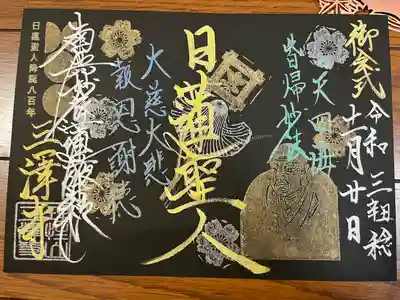 御会式
令和三
十一月廿日
一天四海
皆帰妙法
日蓮聖人
大慈大悲
報恩謝徳
南無妙法蓮華経
三澤寺
日蓮聖人降誕八百年